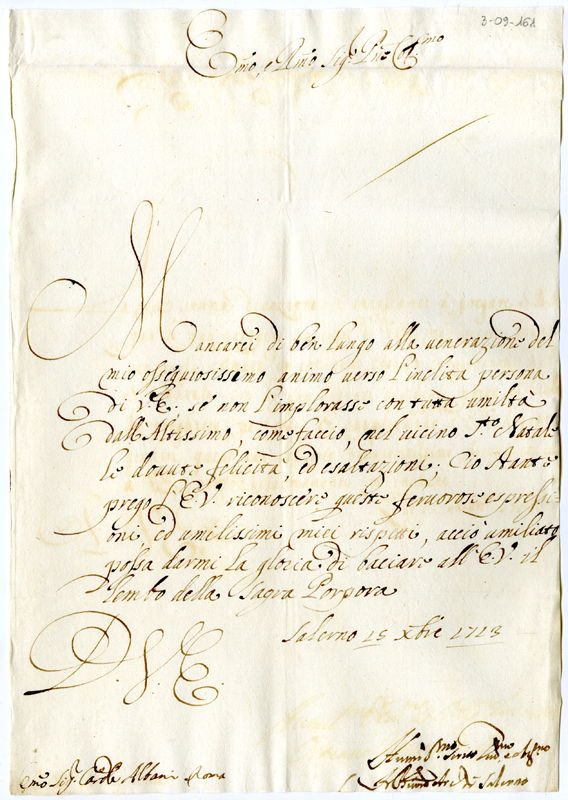 3-09-161
E.mo, e R.mo Sig.r P.ne Col.mo
Mancarei di ben lungo alla venerazione del
mio ossequiosissimo animo verso l'inclita persona
di V.E., se non l'implorasse con tutta umiltà
dall'Altissimo, come faccio, nel vicino S.to Natale
le dovute felicità, ed esaltazioni; Ciò stante
prego l'E.V. riconoscere queste fervorose espressi-
oni ed umilissimi miei rispetti, acciò umiliato
possa darmi la gloria di bacciare all'E.V. il
lembo della Sagra Porpora
Salerno 15 Xbre 1713
D. V. E.
Salerno
E.mo Sig.r Card.le Albani Roma